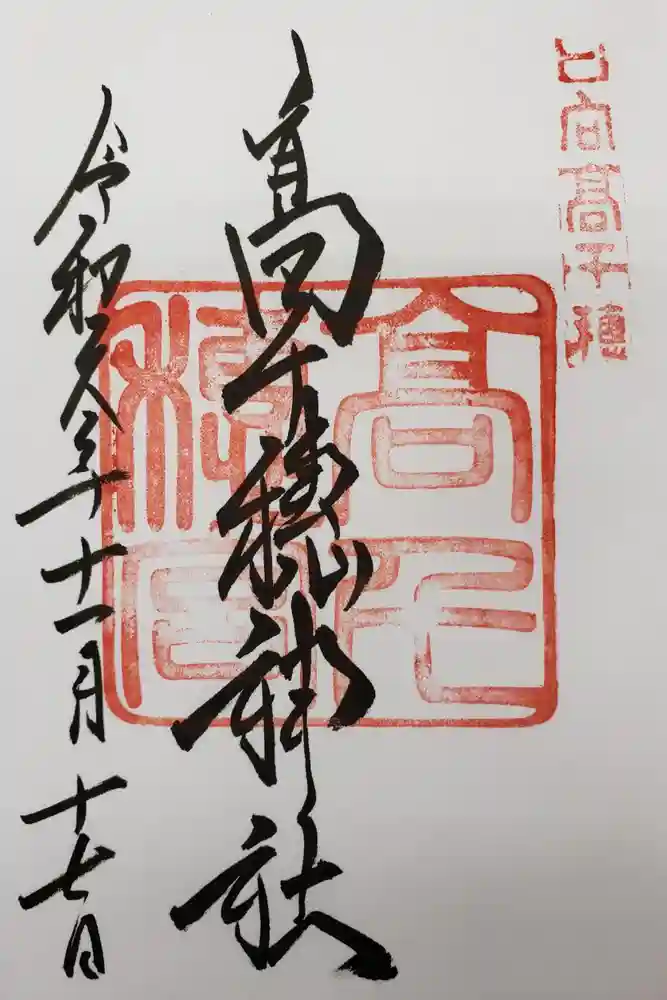 日向高千穂
高千穂神社
高千
穂宮
令和元年十一月十七日